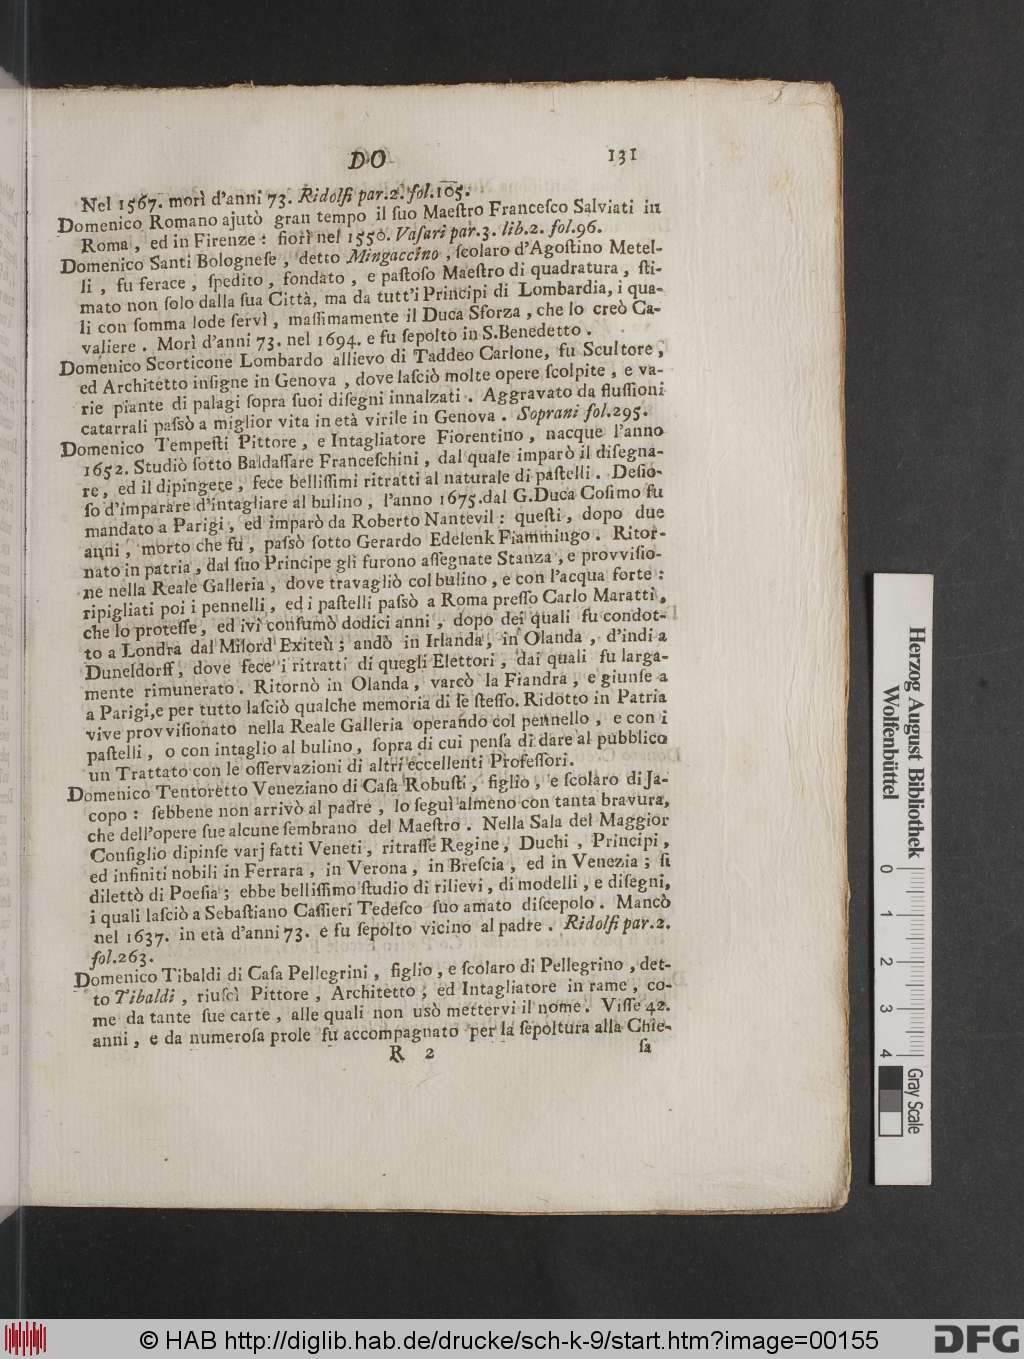 DO 131
Nel 1567. morì d'anni 73. Ridolfi par.2. fol.105.
Domenico Romano ajutò gran tempo il ſuo Maeſtro Franceſco Salviati in
Roma, ed in Firenze: fiorì nel 1550. Vaſari par.3. lib.2. fol.96.
Domenico Santi Bologneſe, detto Mingaccino, ſcolaro d'Agoſtino Metel-
li, fu ferace, ſpedito, fondato, e paſtoſo Maeſtro di quadratura, ſti-
mato non ſolo dalla ſua Città, ma da tutt'i Principi di Lombardia, i qua-
li con ſomma lode ſervì, maſſimamente il Duca Sforza, che lo creò Ca-
valiere. Morì d'anni 73. nel 1694. e fu ſepolto in S.Benedetto.
Domenico Scorticone Lombardo allievo di Taddeo Carlone, fu Scultore,
ed Architetto inſigne in Genova, dove laſciò molte opere ſcolpite, e va-
rie piante di palagi ſopra ſuoi diſegni innalzati. Aggravato da fluſſioni
catarrali paſsò a miglior vita in età virile in Genova. Soprani fol.295.
Domenico Tempeſti Pittore, e Intagliatore Fiorentino, nacque l'anno
1652. Studiò ſotto Baldaſſare Franceſchini, dal quale imparò il diſegna-
re, ed il dipingere, fece belliſſimi ritratti al naturale di paſtelli. Deſio-
ſo d'imparare d'intagliare al bulino, l'anno 1675.dal G.Duca Coſimo fu
mandato a Parigi, ed imparò da Roberto Nantevil: queſti, dopo due
anni, morto che fu, paſsò ſotto Gerardo Edelenk Fiammingo. Ritor-
nato in patria, dal ſuo Principe gli furono aſſegnate Stanza, e provviſio-
ne nella Reale Galleria, dove travagliò col bulino, e con l'acqua forte:
ripigliati poi i pennelli, ed i paſtelli paſsò a Roma preſſo Carlo Maratti,
che lo proteſſe, ed ivi conſumò dodici anni, dopo dei quali fu condot-
to a Londra dal Milord Exiteù; andò in Irlanda, in Olanda, d'indi a
Duneſdorff, dove fece i ritratti di quegli Elettori, dai quali fu larga-
mente rimunerato. Ritornò in Olanda, varcò la Fiandra, e giunſe a
a Parigi,e per tutto laſciò qualche memoria di ſe ſteſſo. Ridotto in Patria
vive provviſionato nella Reale Galleria operando col pennello, e con i
paſtelli, o con intaglio al bulino, ſopra di cui penſa di dare al pubblico
un Trattato con le oſſervazioni di altri eccellenti Profeſſori.
Domenico Tentoretto Veneziano di Caſa Robuſti, figlio, e ſcolaro di Ja-
copo: ſebbene non arrivò al padre, lo ſeguì almeno con tanta bravura,
che dell'opere ſue alcune ſembrano del Maeſtro. Nella Sala del Maggior
Conſiglio dipinſe varj fatti Veneti, ritraſſe Regine, Duchi, Principi,
ed infiniti nobili in Ferrara, in Verona, in Breſcia, ed in Venezia; ſi
dilettò di Poeſia; ebbe belliſſimo ſtudio di rilievi, di modelli, e diſegni,
i quali laſciò a Sebaſtiano Caſſieri Tedeſco ſuo amato diſcepolo. Mancò
nel 1637. in età d'anni 73. e fu ſepolto vicino al padre. Ridolfi par.2.
fol.263.
Domenico Tibaldi di Caſa Pellegrini, figlio, e ſcolaro di Pellegrino, det-
to Tibaldi, riuſcì Pittore, Architetto; ed Intagliatore in rame, co-
me da tante ſue carte, alle quali non usò mettervi il nome. Viſſe 42.
anni, e da numeroſa prole fu accompagnato per la ſepoltura alla Chie-
R 2 ſa
Herzog August Bibliothek
Wolfenbüttel
0 1 2 3 4
Gray Scale
© HAB http://diglib.hab.de/drucke/sch-k-9/start.htm?image=00155
DFG